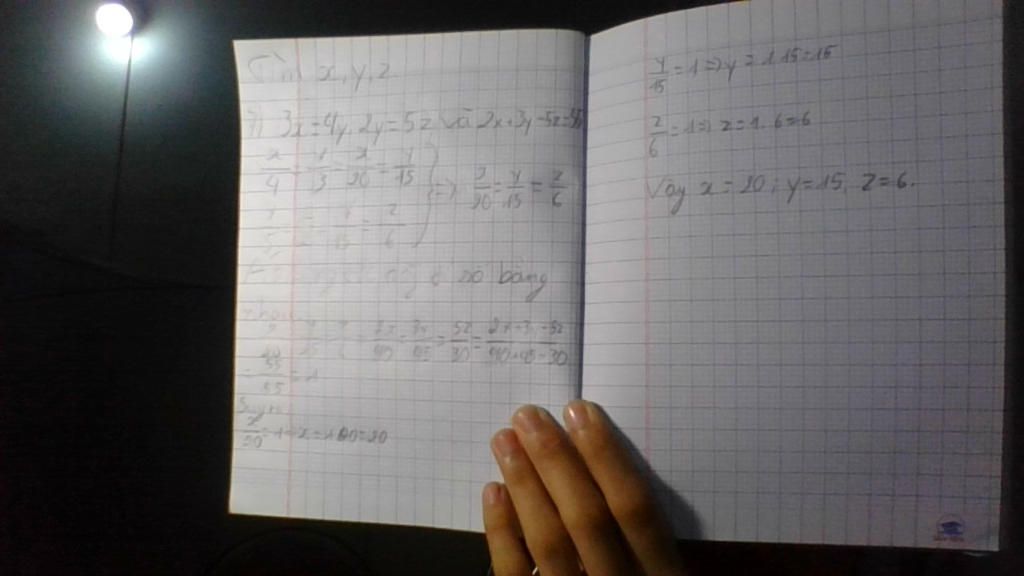 Tìm x, y, z
7) 3x = 4y, 2y = 5z và 2x + 3y - 5z = 55
x/4 = y/3 = x/20 = y/15
=> x/20 = y/15 = z/6
y/5 = = y/15 = z/6
số bằng
nhau
= 2x/40 = 3y/45 = 5z/30 = 2x + 3y - 5z/40 + 45 - 30
= 55/55 = 1
Suy ra
x/20 = 1 => x = 1.20 = 20
y/15 = 1 => y = 1.15 = 15
z/6 = 1 => z = 1.6 = 6
Vậy x = 20; y = 15, z = 6.